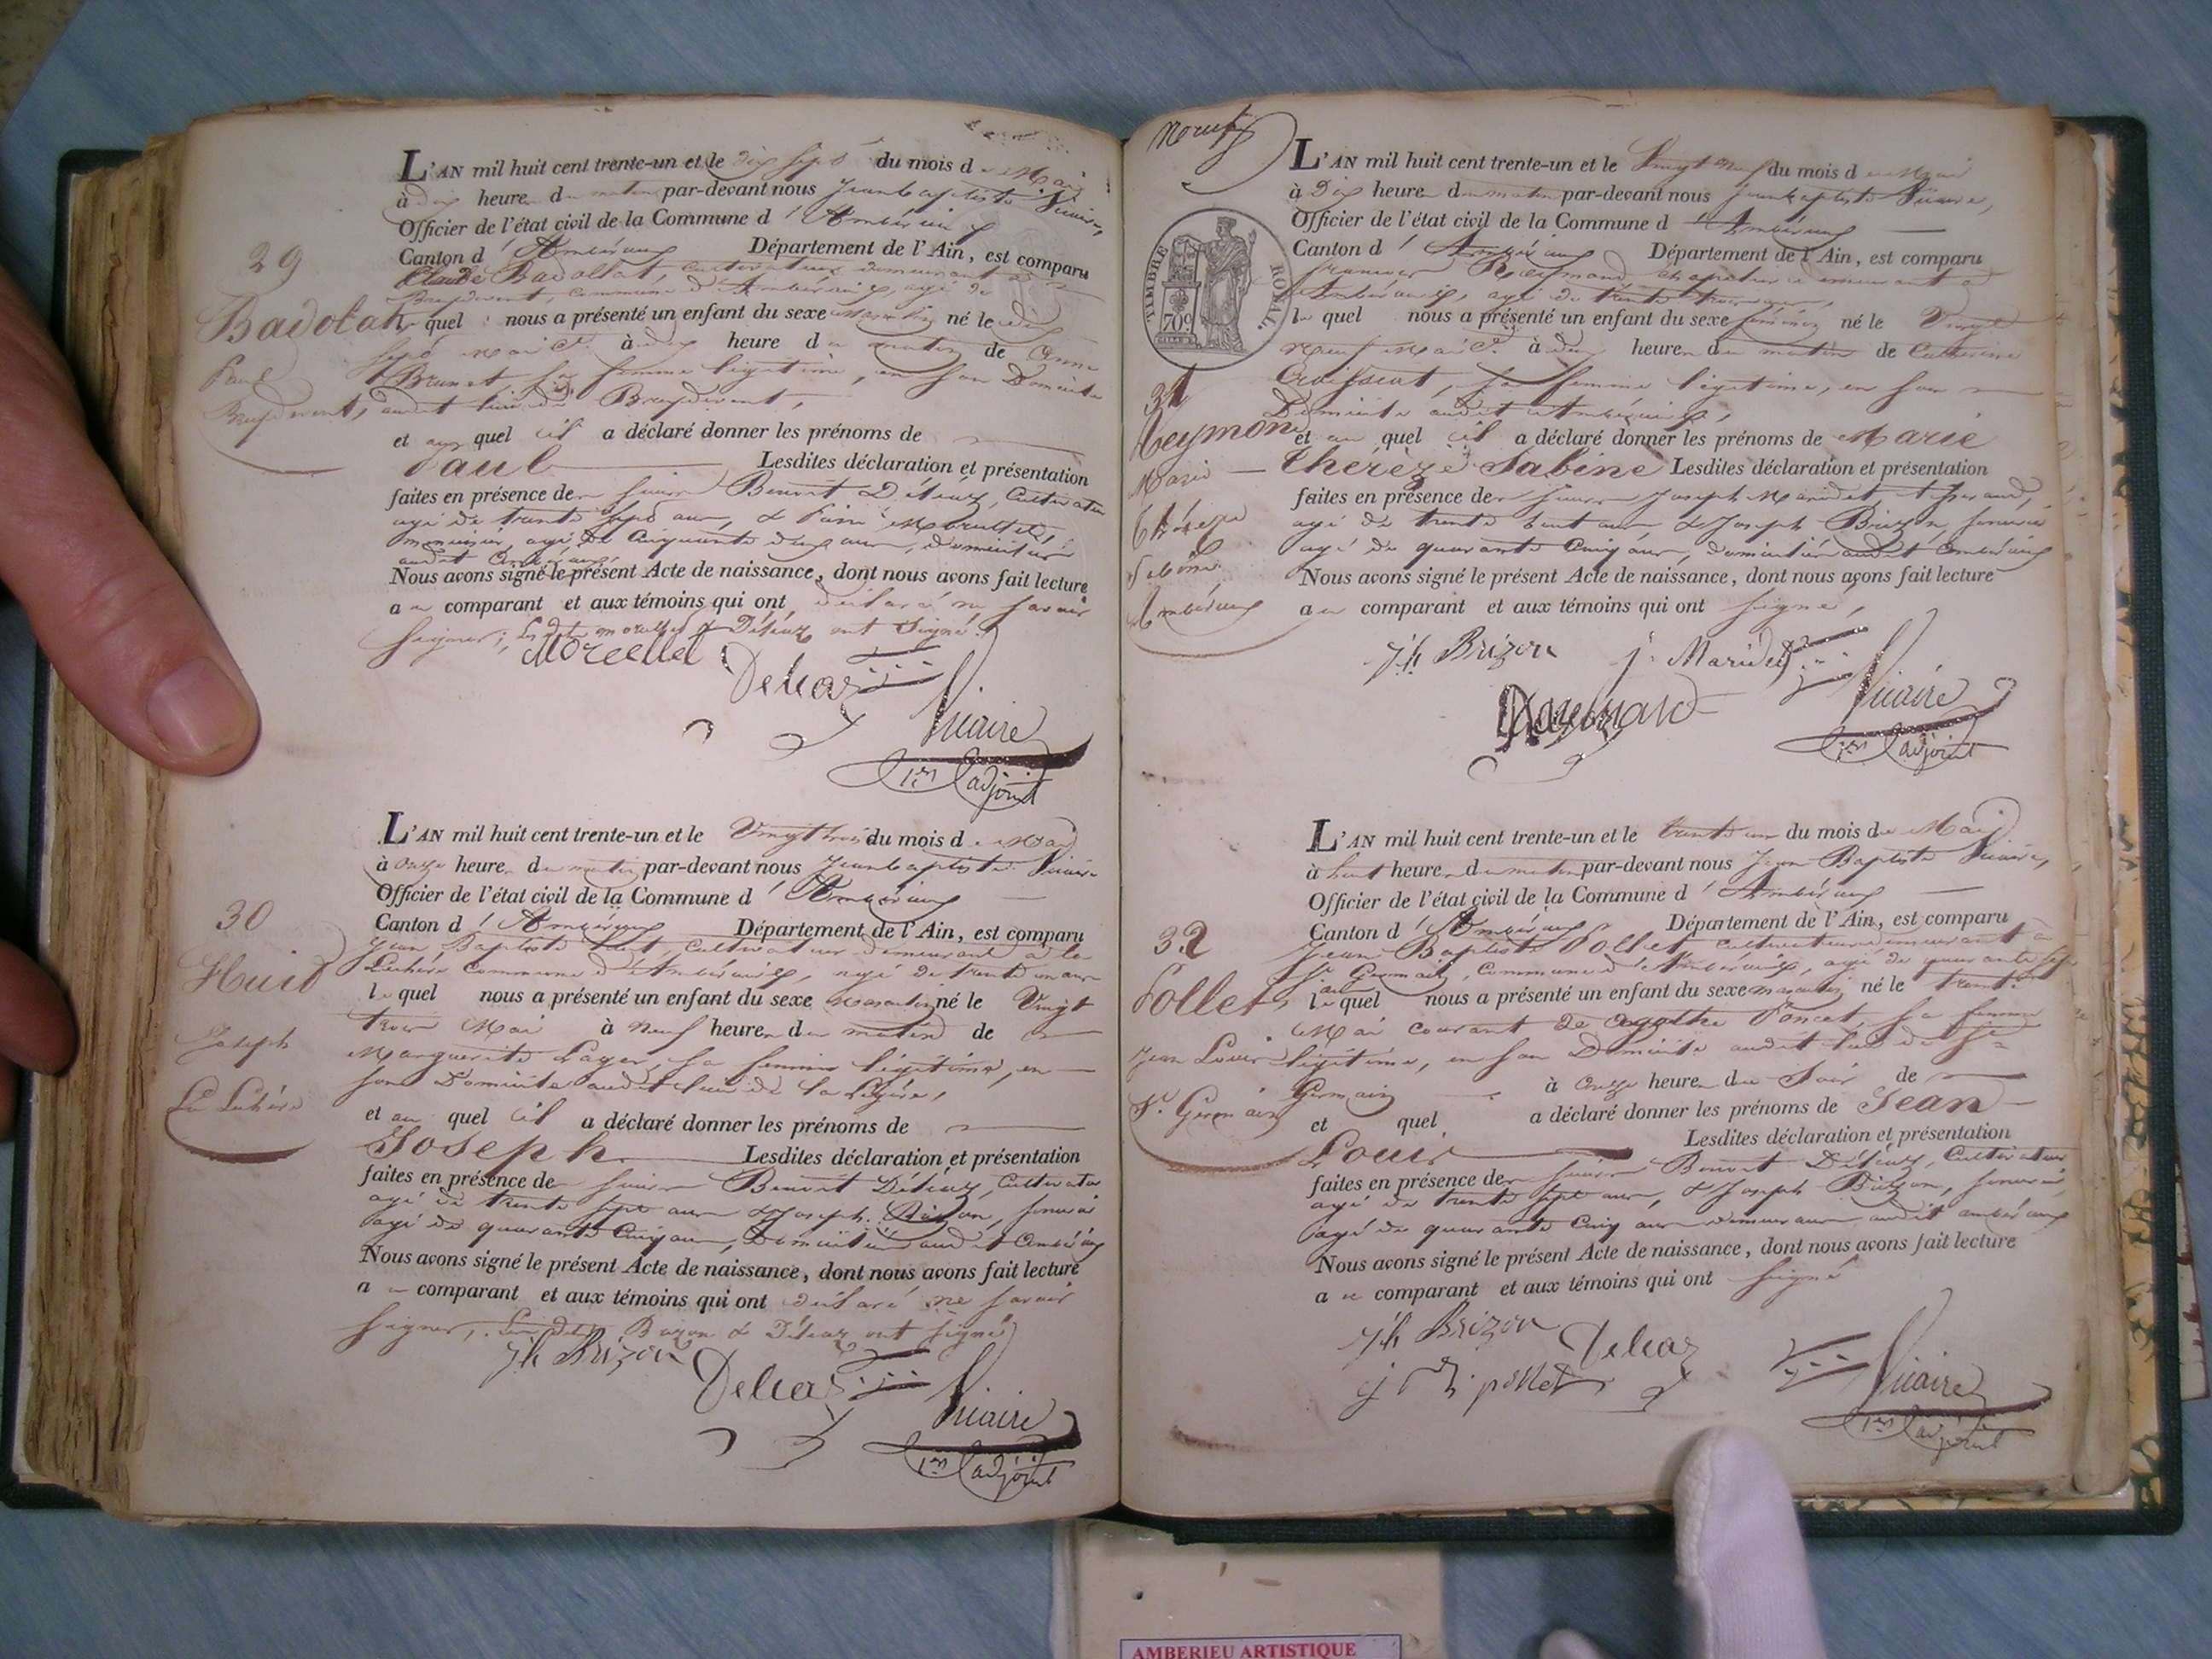 29
Badolat
Paul
Breydevent,
L'AN mil huit cent trente-un et le dix sept du mois de Mai
à dix heure du matin par-devant nous Jean baptiste Vicaire,
Officier de l'état civil de la Commune d'Ambérieux
Canton d'Ambérieux Département de l'Ain, est comparu
Claude Badollat, cultivateur demeurant à
commune d'Ambérieux, agé de
le quel nous a présenté un enfant du sexe masculin né le dix
sept Mai Ct. à dix heure du matin de Anne
Brunet, sa femme légitime, en son Domicile
audit lieu de Breydevent,
et auquel il a déclaré donner les prénoms de
Paul Lesdites déclaration et présentation
faites en présence de sieurs Benoit Déléaz, Cultivateur
agé de trente sept ans, &
agé de Cinquante deux ans, domiciliés
audit Ambérieux
Nous avons signé le présent Acte de naissance, dont nous avons fait lecture
au comparant et aux témoins qui ont déclaré ne savoir
signer; Lesdits & Déléaz ont Signé.
Deleaz
Vicaire
1er adjoint
30
Huit
Joseph
La Luhère
L'AN mil huit cent trente-un et le Vingt trois du mois de Mai
à onze heure du matin par-devant nous Jean baptiste Vicaire
Officier de l'état civil de la Commune d'Ambérieux
Canton d'Ambérieux Département de l'Ain, est comparu
Jean Baptiste Huit, cultivateur demeurant à la
Luhère commune d'Ambérieux, agé de trente un ans
le quel nous a présenté un enfant du sexe masculin né le Vingt
trois Mai à neuf heure du matin de
Marguerite Lager, sa femme légitime, en
son Domicile audit lieu de la
et au quel il a déclaré donner les prénoms de
Joseph Lesdites déclaration et présentation
faites en présence de sieurs Benoit Déléaz, Cultivateur
agé de trente sept ans & Joseph Brizon,
agé de quarante Cinq ans, Domiciliés audit Ambérieux
Nous avons signé le présent Acte de naissance, dont nous avons fait lecture
au comparant et aux témoins qui ont déclaré ne savoir
signer, Lesdits Brizon & Déléaz ont signé
Jh Brizon
Deleaz
Vicaire
1er adjoint
neuf
TIMBRE ROYAL.
709
31
Reymond
Marie
Thérèze
Sabine
Ambérieux
L'AN mil huit cent trente-un et le Vingt neuf du mois de Mai
à Dix heure du matin par-devant nous Jean baptiste Vicaire,
Officier de l'état civil de la Commune d'Ambérieux
Canton d'Ambérieux Département de l'Ain, est comparu
Reymond demeurant à
Ambérieux, agé de trente trois ans,
le quel nous a présenté un enfant du sexe féminin né le Vingt
neuf Mai Ct. à deux heure du matin de Catherine
Croissiat, sa femme légitime, en son
Domicile audit Ambérieux,
et au quel il a déclaré donner les prénoms de Marie
Thérèze Sabine Lesdites déclaration et présentation
faites en présence de sieurs Joseph Maridet, tisserand,
agé de trente huit ans & Joseph Brizon,
agé de quarante Cinq ans, Domiciliés audit Ambérieux
Nous avons signé le présent Acte de naissance, dont nous avons fait lecture
au comparant et aux témoins qui ont signé,
Jh Brizon
j. Maridet
Vicaire
1er adjoint
32
Pollet,
Jean Louis
St. Germain
L'AN mil huit cent trente-un et le trente un du mois de Mai
à huit heure du matin par-devant nous Jean Baptiste Vicaire,
Officier de l'état civil de la Commune d'Ambérieux
Canton d'Ambérieux Département de l'Ain, est comparu
Jean Baptiste Pollet, cultivateur demeurant à
St. Germain, Commune d'Ambérieux, agé de quarante sept
ans
le quel nous a présenté un enfant du sexe masculin né le trente
Mai courant de Agathe Poncet sa femme
légitime, en son Domicile audit lieu de St
Germain à onze heure du Soir de
et quel a déclaré donner les prénoms de Jean
Louis Lesdites déclaration et présentation
faites en présence de sieurs Benoit Déléaz, Cultivateur
agé de trente sept ans, & Joseph Brizon,
agé de quarante Cinq ans demeurans audit Ambérieux
Nous avons signé le présent Acte de naissance, dont nous avons fait lecture
au comparant et aux témoins qui ont signé
Jh Brizon
Deleaz
Vicaire
1er adjoint
AMBERIEU ARTISTIQUE